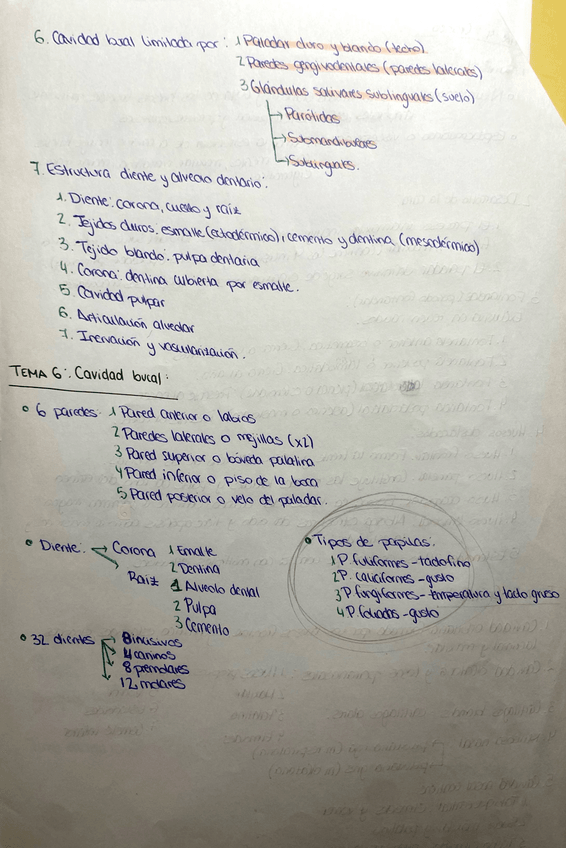 6. Cavidad bucal limitada por: 1 Paladar duro y blando (techo).
2 Paredes gingivodentales (paredes laterales)
3 Glándulas salivares sublinguales (suelo)
→ Parótidas
→ Submandibulares
→ Sublinguales.
7. Estructura diente y alveolo dentario:
1. Diente: corona, cuello y raíz
2. Tejidos duros, esmalte (ectodérmico), cemento y dentina (mesodérmico)
3. Tejido blando: pulpa dentaria
4. Corona: dentina cubierta por esmalte.
5. Cavidad pulpar
6. Articulación alveolar
7. Inervación y vascularización.
TEMA 6: Cavidad bucal:
6 paredes: 1 Pared anterior o labios
2 Paredes laterales o mejillas (x2)
3 Pared superior o bóveda palatina
4 Pared inferior o piso de la boca
5 Pared posterior o velo del paladar.
Diente: → Corona 1 Emalle
2 Dentina
Raiz 1 Alveolo dental
2 Pulpa
3 Cemento
Tipos de papilas:
1 P. fuliformes - tacto fino
2 P. caliciformes - gusto
3 P fungiformes - temperatura y tacto grueso
4 P. foliadas - gusto
32 dientes → 8 incisivos
4 caninos
8 premolares
12 molares